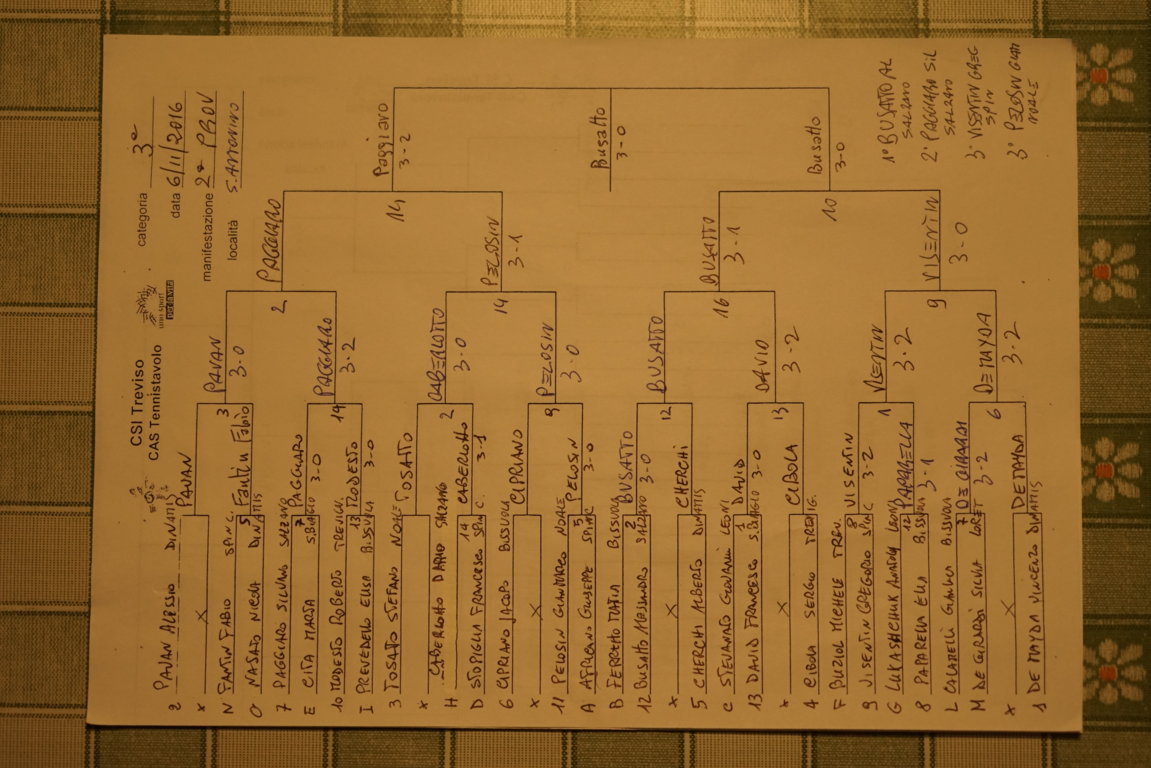 CSI Treviso
CAS Tennistavolo
categoria 3ª
data 6/11/2016
manifestazione 2ª PROV
località S. ANTONINO
2 PAVAN ALESSIO DINAMIS
X X
N FANTIN FABIO SPIN C.
O NASATO NICOLA DINAMIS
7 PAGGIARO SILVANO SALZANO
E CITA MARTA S.BIAGIO
10 MODESTO ROBERTO TREVIGN.
I PREVEDELLO ELISA BISSUOLA
3 TOSATO STEFANO NOALE
X X
H CABERLOTTO DARIO SALZANO
D STOPIGLIA FRANCESCO SPIN C.
6 CIPRIANO JACOPO BISSUOLA
X X
11 PELOSIN GIANMARCO NOALE
A GIUSEPPE SPIN C
B MATIA BISSUOLA
12 BUSATTO ALESSANDRO SALZANO
X X
5 CHERCHI ALBERTO DINAMIS
C STEVANATO GIOVANNI LEONI
13 DAVID FRANCESCO S.BIAGIO
X X
4 CIBOLA SERGIO TREVIG.
F BUZIOL MICHELE TREV.
9 VISENTIN GREGORIO SPIN C
G LUKASHCHUK ANATOLY LEONI
8 PAPARELLA ELIA BISSUOLA
L GIANLUCA BISSUOLA
M DE GIRARDI SILVIA LORET
X X
1 DE MAYDA VINCENZO DINAMIS
PAVAN
5 Fantin Fabio
7 PAGGIARO
3-0
13 MODESTO
3-0
TOSATO
14 CABERLOTTO
3-1
CIPRIANO
5 PELOSIN
3-0
2 BUSATTO
3-0
CHERCHI
1 DAVID
3-0
CIBOLA
8 VISENTIN
3-2
12 PAPARELLA
3-1
7 DE GIRARDI
3-2
DE MAYDA
3 PAVAN
3-0
14 PAGGIARO
3-2
2 CABERLOTTO
3-0
9 PELOSIN
3-0
12 BUSATTO
13 DAVID
3-2
1 VISENTIN
3-2
6 DE MAYDA
3-2
2 PAGGIARO
14 PELOSIN
3-1
16 BUSATTO
3-1
9 VISENTIN
3-0
14 Paggiaro
3-2
10 Busatto
3-0
Busatto
3-0
1° BUSATTO AL
SALZANO
2° PAGGIARO SIL
SALZANO
3° VISENTIN GREG
SPIN
3° PELOSIN GIAN
NOALE